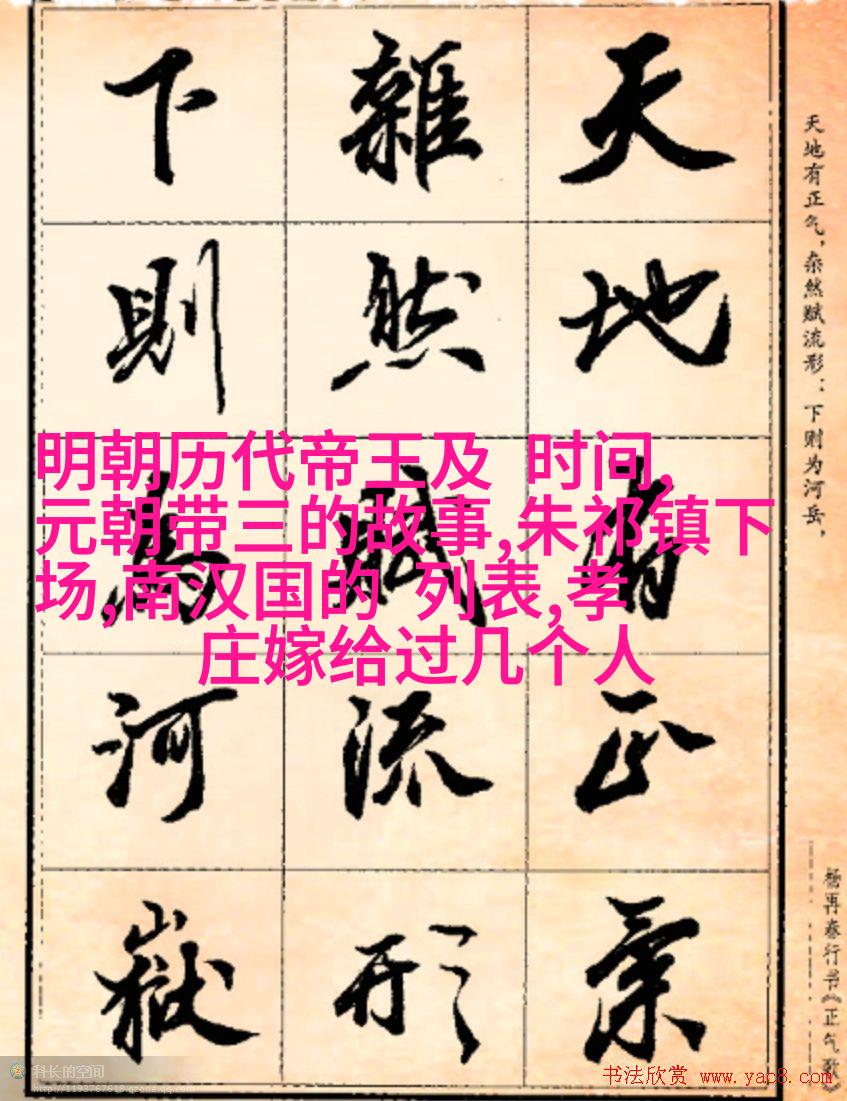 天地有正氣
雜然賦流形
下則為河嶽
天地有正气，杂然赋流形：下则为河岳，
杨再春行书《正气歌》
明朝历代帝王及 时间,
元朝带三的故事,朱祁镇下
场,南汉国的 列表,孝
庄嫁给过几个人
科长的空间
http://1193767618.qzone.qq.com
书法欣赏 www.yac8.com